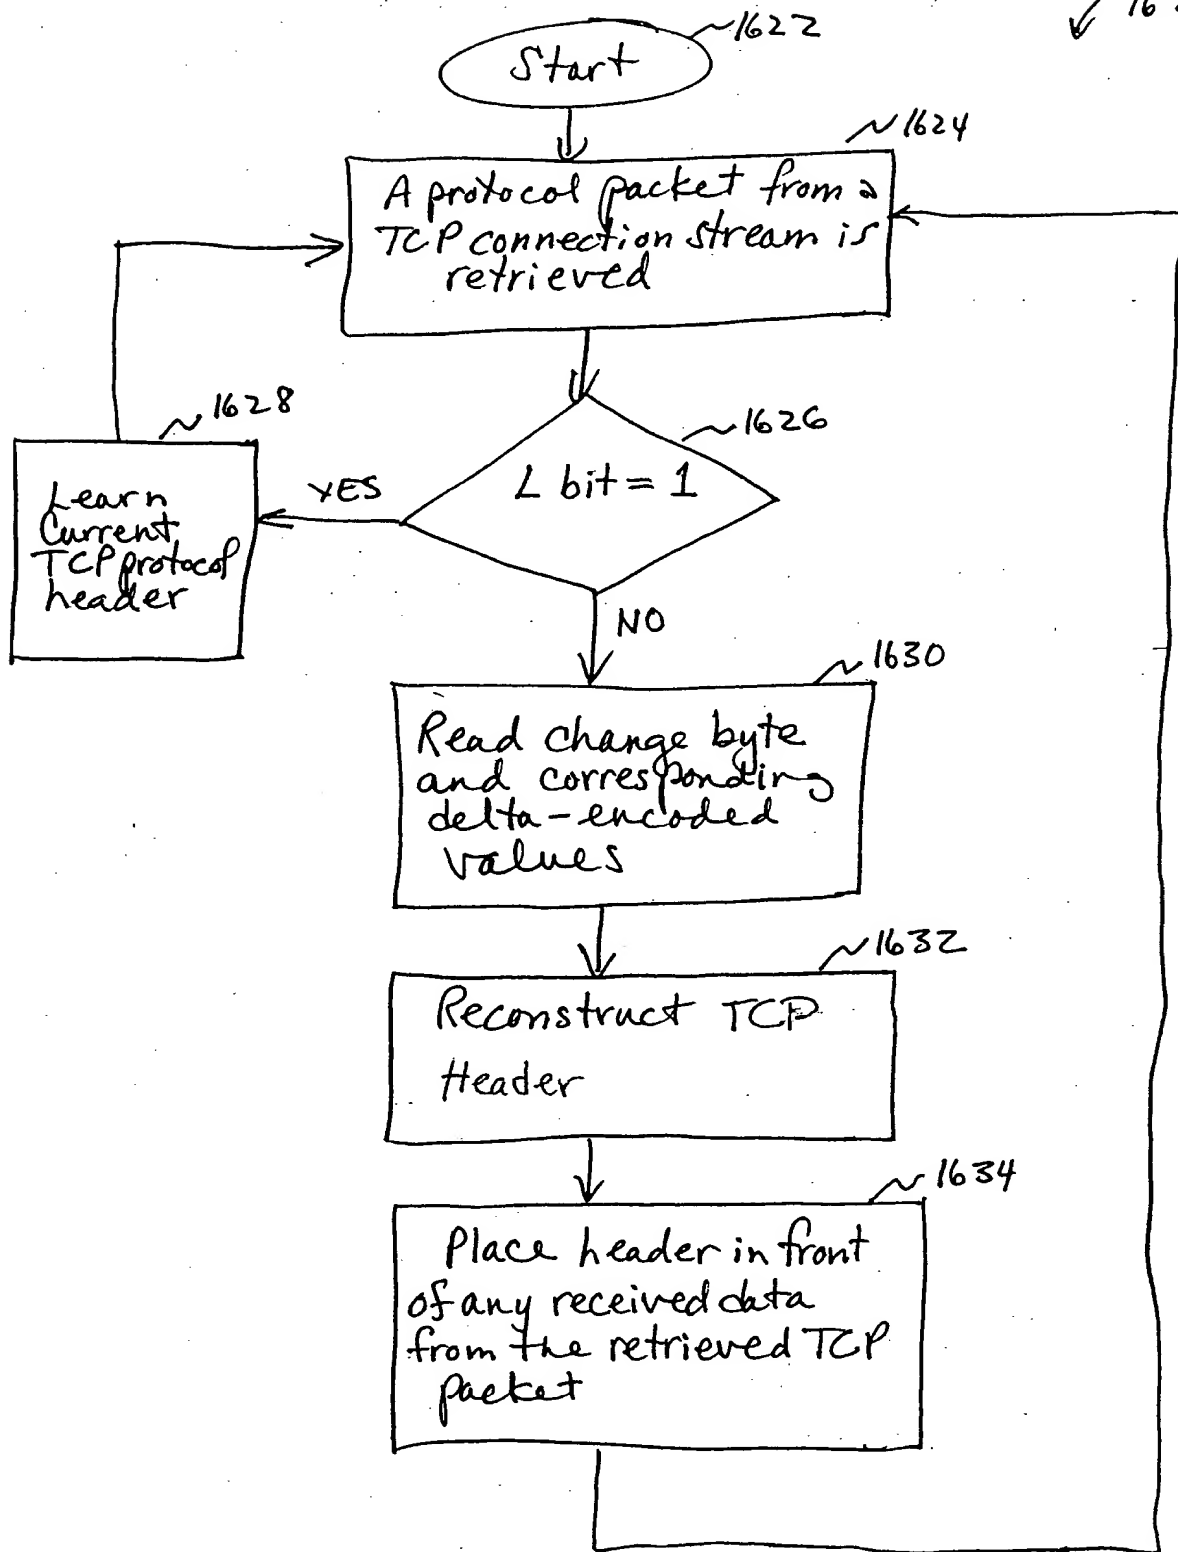 1622
Start
1624
A protocol packet from a
TCP connection stream is
retrieved
1628
1626
L bit = 1
YES
Learn
Current
TCP protocol
header
NO
1630
Read change byte
and corresponding
delta-encoded
values
1632
Reconstruct TCP
Header
1634
Place header in front
of any received data
from the retrieved TCP
packet